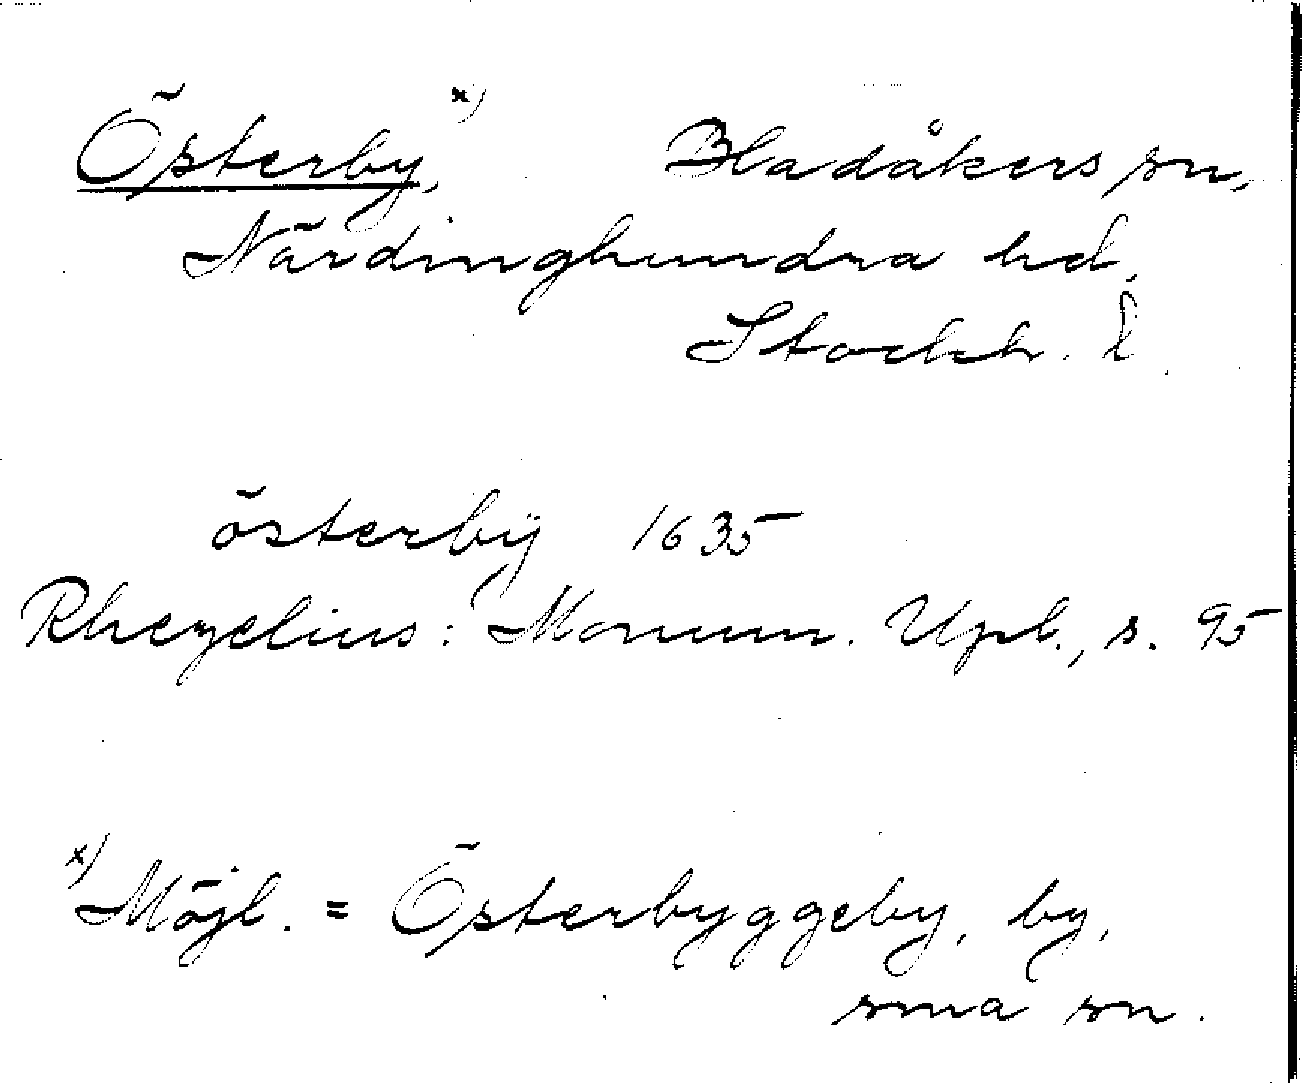 Österby,x) Bladåkers sn,
Närdinghundra hd,
Stockh. l.
österbÿ 1635
Rhezelius: Monum. Upl., s. 95
x) Möjl. = Österbyggeby, by,
sma sn.